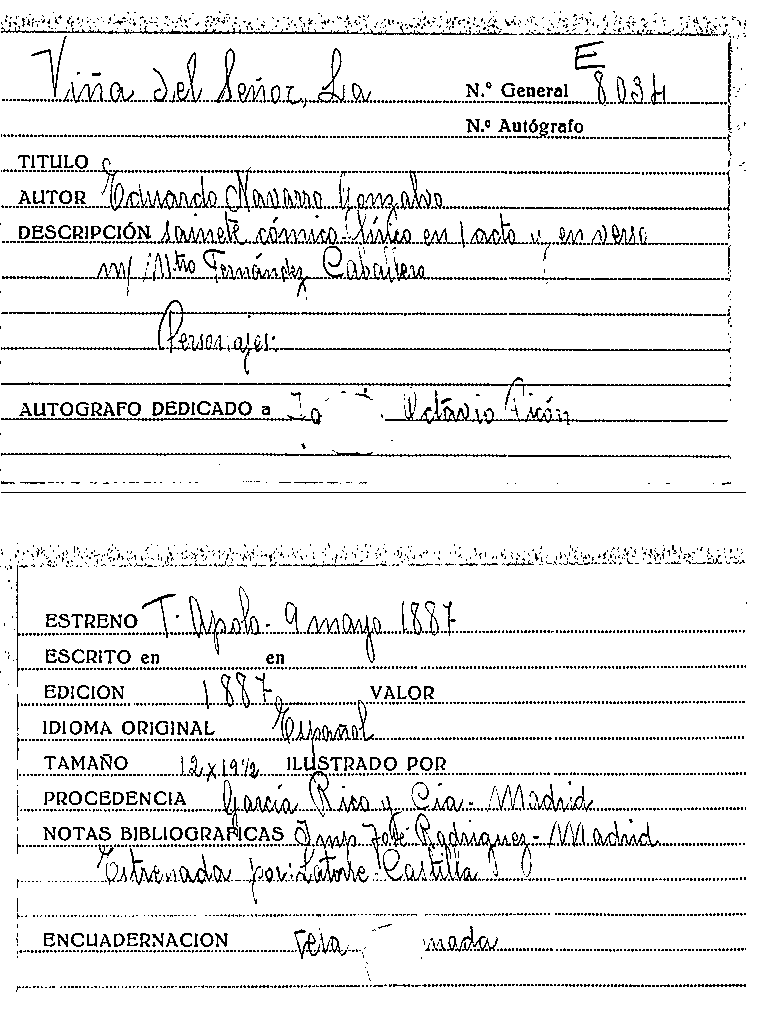 Viña del Señor, La N.º General E 8034
N.º Autógrafo
TITULO
AUTOR Eduardo Navarro Gonzalvo
DESCRIPCIÓN sainete cómico-lírico en 1 acto y en verso
m/ Mtro Fernández Caballero
Personajes:
AUTOGRAFO DEDICADO a Octavio Picón
ESTRENO T. Apolo - 9 mayo 1887
ESCRITO en en
EDICION 1887 VALOR
IDIOMA ORIGINAL Español
TAMAÑO 12 x 19 1/2 ILUSTRADO POR
PROCEDENCIA García Rico y Cía - Madrid
NOTAS BIBLIOGRAFICAS Imp José Rodriguez - Madrid
Estrenada por: Latorre - Castilla
ENCUADERNACION Tela